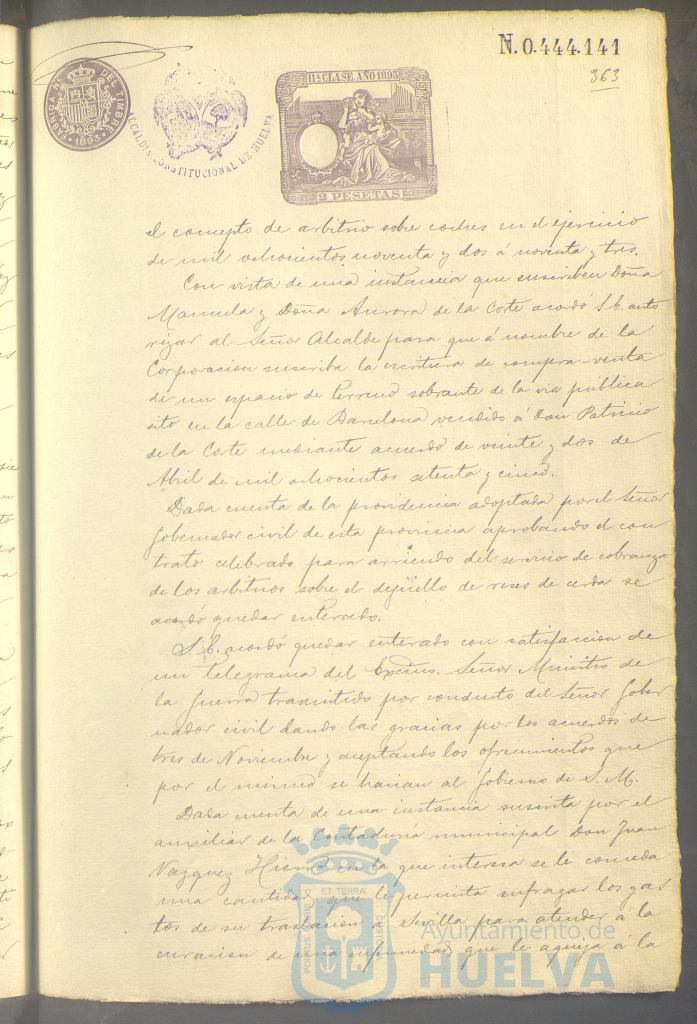 N. 0.444.141
363
FABRICA NAL DEL TIMBRE
1893
ALCALDIA CONSTITUCIONAL DE HUELVA
11ª CLASE. AÑO 1893
2 PESETAS
el concepto de arbitrio sobre coches en el ejercicio
de mil ochocientos noventa y dos á noventa y tres.
Con vista de una instancia que suscriben Doña
Manuela y Doña Aurora de la Corte acordó S. E. auto
rizar al Señor Alcalde para que á nombre de la
Corporacion suscriba la escritura de compra-venta
de un espacio de terreno sobrante de la via publica
sito en la calle de Barcelona vendido á Don Patricio
de la Corte mediante acuerdo de veinte y dos de
Abril de mil ochocientos setenta y cinco.
Dada cuenta de la providencia adoptada por el Señor
Gobernador civil de esta provincia aprobando el con
trato celebrado para arriendo del servicio de cobranza
de los arbitrios sobre el degüello de reses de cerda se
acordó quedar enterado.
S. E. acordó quedar enterado con satisfaccion de
un telegrama del Excmo. Señor Ministro de
la Guerra trasmitido por conducto del Señor Gober
nador civil dando las gracias por los acuerdos de
tres de Noviembre y aceptando los ofrecimientos que
por el mismo se hacian al Gobierno de S. M.
Dada cuenta de una instancia suscrita por el
auxiliar de la Contaduría municipal Don Juan
Vazquez Hierro en la que interesa se le conceda
una cantidad que le permita sufragar los gas
tos de su traslacion á Sevilla para atender á la
curacion de una enfermedad que le aqueja á la
PORTUS MARIS ET TERRÆ CUSTODIA
Ayuntamiento de
HUELVA